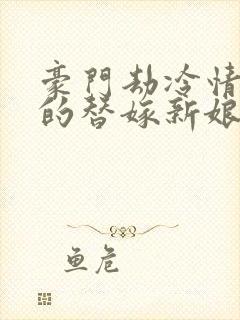 豪門劫冷情
的替嫁新娘
鱼危